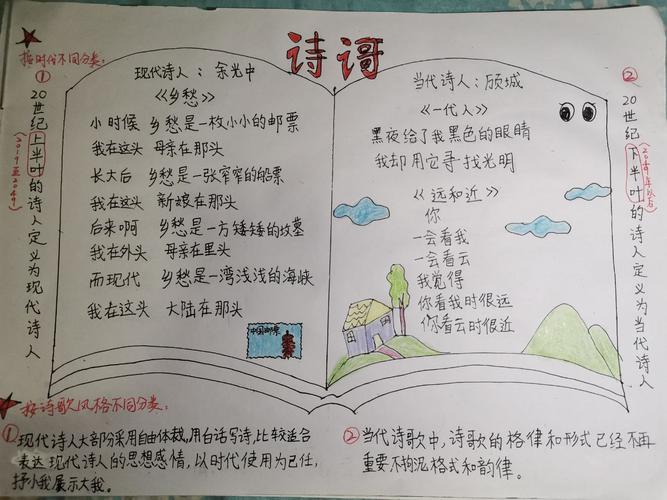 诗謌
按时代不同分类:
①
20世纪上半叶的诗人定义为现代诗人
(2019至2049)
现代诗人:余光中
《乡愁》
小时候 乡愁是一枚小小的邮票
我在这头 母亲在那头
长大后 乡愁是一张窄窄的船票
我在这头 新娘在那头
后来啊 乡愁是一方矮矮的坟墓
我在外头 母亲在里头
而现代 乡愁是一湾浅浅的海峡
我在这头 大陆在那头
中国邮票
当代诗人:顾城
《一代人》
黑夜给了我黑色的眼睛
我却用它寻找光明
《远和近》
你
一会看我
一会看云
我觉得
你看我时很远
你看云时很近
②
20世纪下半叶的诗人定义为当代诗人
(2049年以后)
按诗歌风格不同分类:
①现代诗人大部分采用自由体裁,用白话写诗,比较适合
表达现代诗人的思想感情,以时代使用为已任,
抒小我展示大我。
②当代诗歌中,诗歌的格律和形式已经不再
重要不拘泥格式和韵律。